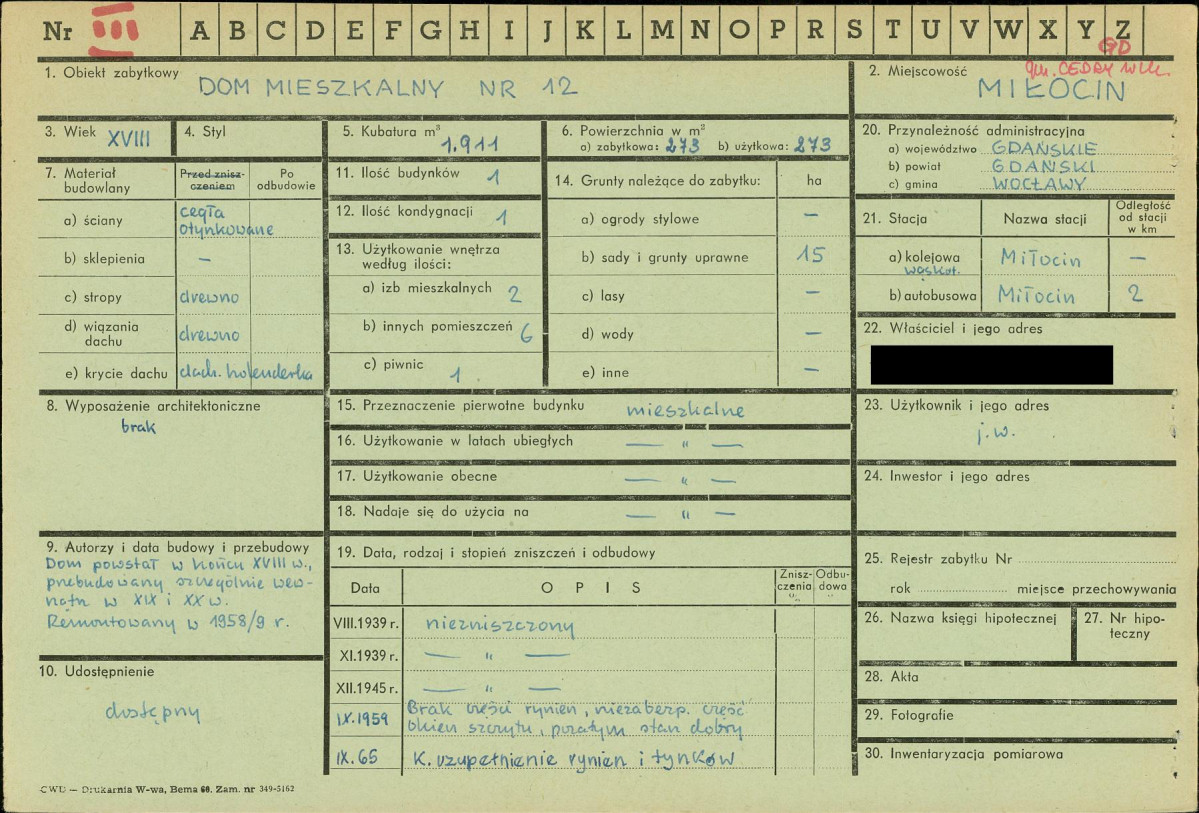 Nr III A B C D E F G H I J K L M N O P R S T U V W X Y Z
GD
gm. CEDRY WLK.
1. Obiekt zabytkowy
DOM MIESZKALNY NR 12
2. Miejscowość
MIŁOCIN
3. Wiek XVIII
4. Styl
5. Kubatura m³
1.911
6. Powierzchnia w m²
a) zabytkowa: 273 b) użytkowa: 273
20. Przynależność administracyjna
a) województwo GDAŃSKIE
b) powiat GDAŃSKI
c) gmina WOCŁAWY
7. Materiał budowlany
Przed zniszczeniem
Po odbudowie
a) ściany cegła otynkowane
b) sklepienia –
c) stropy drewno
d) wiązania dachu drewno
e) krycie dachu dach. holenderka
11. Ilość budynków 1
12. Ilość kondygnacji 1
13. Użytkowanie wnętrza
według ilości:
a) izb mieszkalnych 2
b) innych pomieszczeń 6
c) piwnic 1
14. Grunty należące do zabytku: ha
a) ogrody stylowe –
b) sady i grunty uprawne 15
c) lasy –
d) wody –
e) inne –
21. Stacja Nazwa stacji Odległość od stacji w km
a) kolejowa wąskot. Miłocin –
b) autobusowa Miłocin 2
22. Właściciel i jego adres
8. Wyposażenie architektoniczne
brak
15. Przeznaczenie pierwotne budynku mieszkalne
16. Użytkowanie w latach ubiegłych — " —
17. Użytkowanie obecne — " —
18. Nadaje się do użycia na — " —
23. Użytkownik i jego adres
j.w.
24. Inwestor i jego adres
9. Autorzy i data budowy i przebudowy
Dom powstał w końcu XVIII w.,
przebudowany szczególnie wew-
nątrz w XIX i XX w.
Remontowany w 1958/9 r.
10. Udostępnienie
dostępny
19. Data, rodzaj i stopień zniszczeń i odbudowy
Data OPIS Zniszczenia % Odbudowa
VIII.1939 r. niezniszczony
XI.1939 r. — " —
XII.1945 r. — " —
IX.1959 Brak części rynien, niezabezp. część
okien szczytu, pozatym stan dobry
IX.65 K. uzupełnienie rynien i tynków
25. Rejestr zabytku Nr
rok miejsce przechowywania
26. Nazwa księgi hipotecznej
27. Nr hipoteczny
28. Akta
29. Fotografie
30. Inwentaryzacja pomiarowa
CWD — Drukarnia W-wa, Bema 60. Zam. nr 349-5162